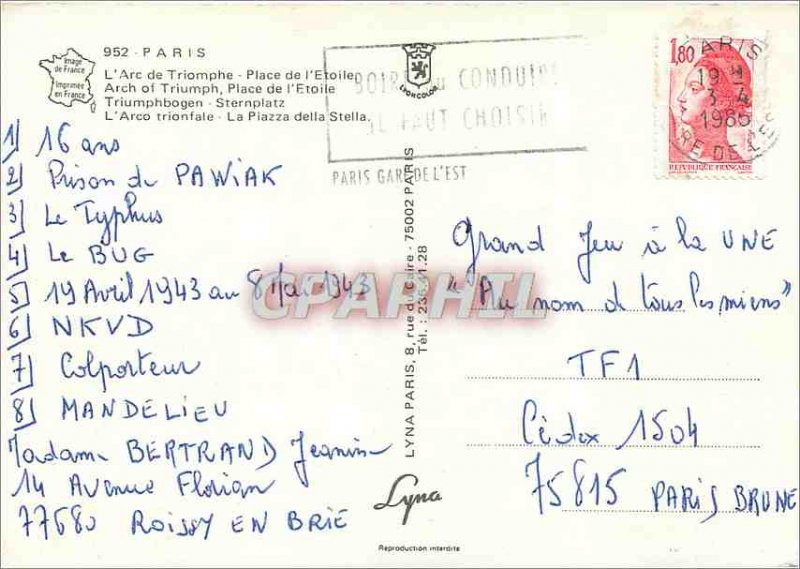 952 - PARIS
Image
de France
Imprimée
en France
L'Arc de Triomphe - Place de l'Etoile
Arch of Triumph, Place de l'Etoile
Triumphbogen - Sternplatz
L'Arco trionfale - La Piazza della Stella.
LYONCOLOR
BOIRE OU CONDUIRE
IL FAUT CHOISIR
PARIS GARE DE L'EST
1,80
PARIS
19 H
3 - 4
1985
GARE DE L'EST
REPUBLIQUE FRANÇAISE
1) 16 ans
2) Prison de PAWIAK
3) Le Typhus
4) Le BUG
5) 19 Avril 1943 au 8 Mai 1943
6) NKVD
7) Colporteur
8) MANDELIEU
Madame BERTRAND Jeannine
14 Avenue Florian
77680 ROISSY EN BRIE
LYNA PARIS, 8, rue du Caire - 75002 PARIS
Tél. : 236.41.28
Grand Jeu à la UNE
"Au nom de tous les miens"
TF1
Cédex 1504
75815 PARIS BRUNE
Lyna
Reproduction interdite
CPAPHIL